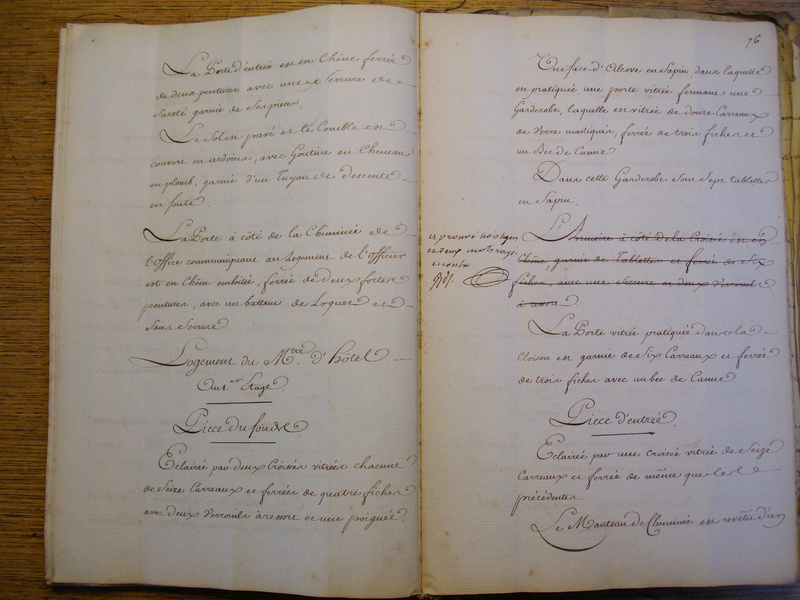 La Porte d'entrée est en Chêne ferrée
de deux pentures avec une Serrure de
Sureté garnie de Ses pieces.
Le Sol en pavé et le Comble en
couvert en ardoises, avec Goutiere en Cheneau
en plomb, garnie d'un Tuyau de descente
en fonte.
La Porte à côté de la Cheminée de
l'Office communiquant au Logement de l'Officier
est en Chêne emboitée, ferrée de deux fortes
pentures, avec un battant de Loquet et
Sans Serrure
Logement du Mtre d'hôtel
Au 1.er Etage
Piece du fond.
Eclairée par deux Croisées vitrées chacune
de Seize Carreaux et ferrées de quatre fiches
avec deux Verrouils à ressort et une poignée
76
Une face d'Alcove en Sapin dans laquelle
est pratiquée une porte vitrée fermant une
Garderobe, laquelle est vitrée de douze Carreaux
de Verre mastiqués, ferrée de trois fiches et
un Bec de Canne.
Dans cette Garderobe sont Sept tablettes
en Sapin.
L'Armoire à côté de la Croisée est en
Chêne, garnie de Tablettes et ferrée de Six
fiches, avec une Serrure et deux Verrouils
à ressort
approuvé trois lignes
et deux mots rayés
La Porte vitrée pratiquée dans la
Cloison est garnie de Six Carreaux et ferrée
de trois fiches avec un bec de Canne
Piece d'entrée
Eclairée par une Croisée vitrée de Seize
Carreaux et ferrée de même que les
précédentes.
Le Manteau de Cheminée est revêtu d'un